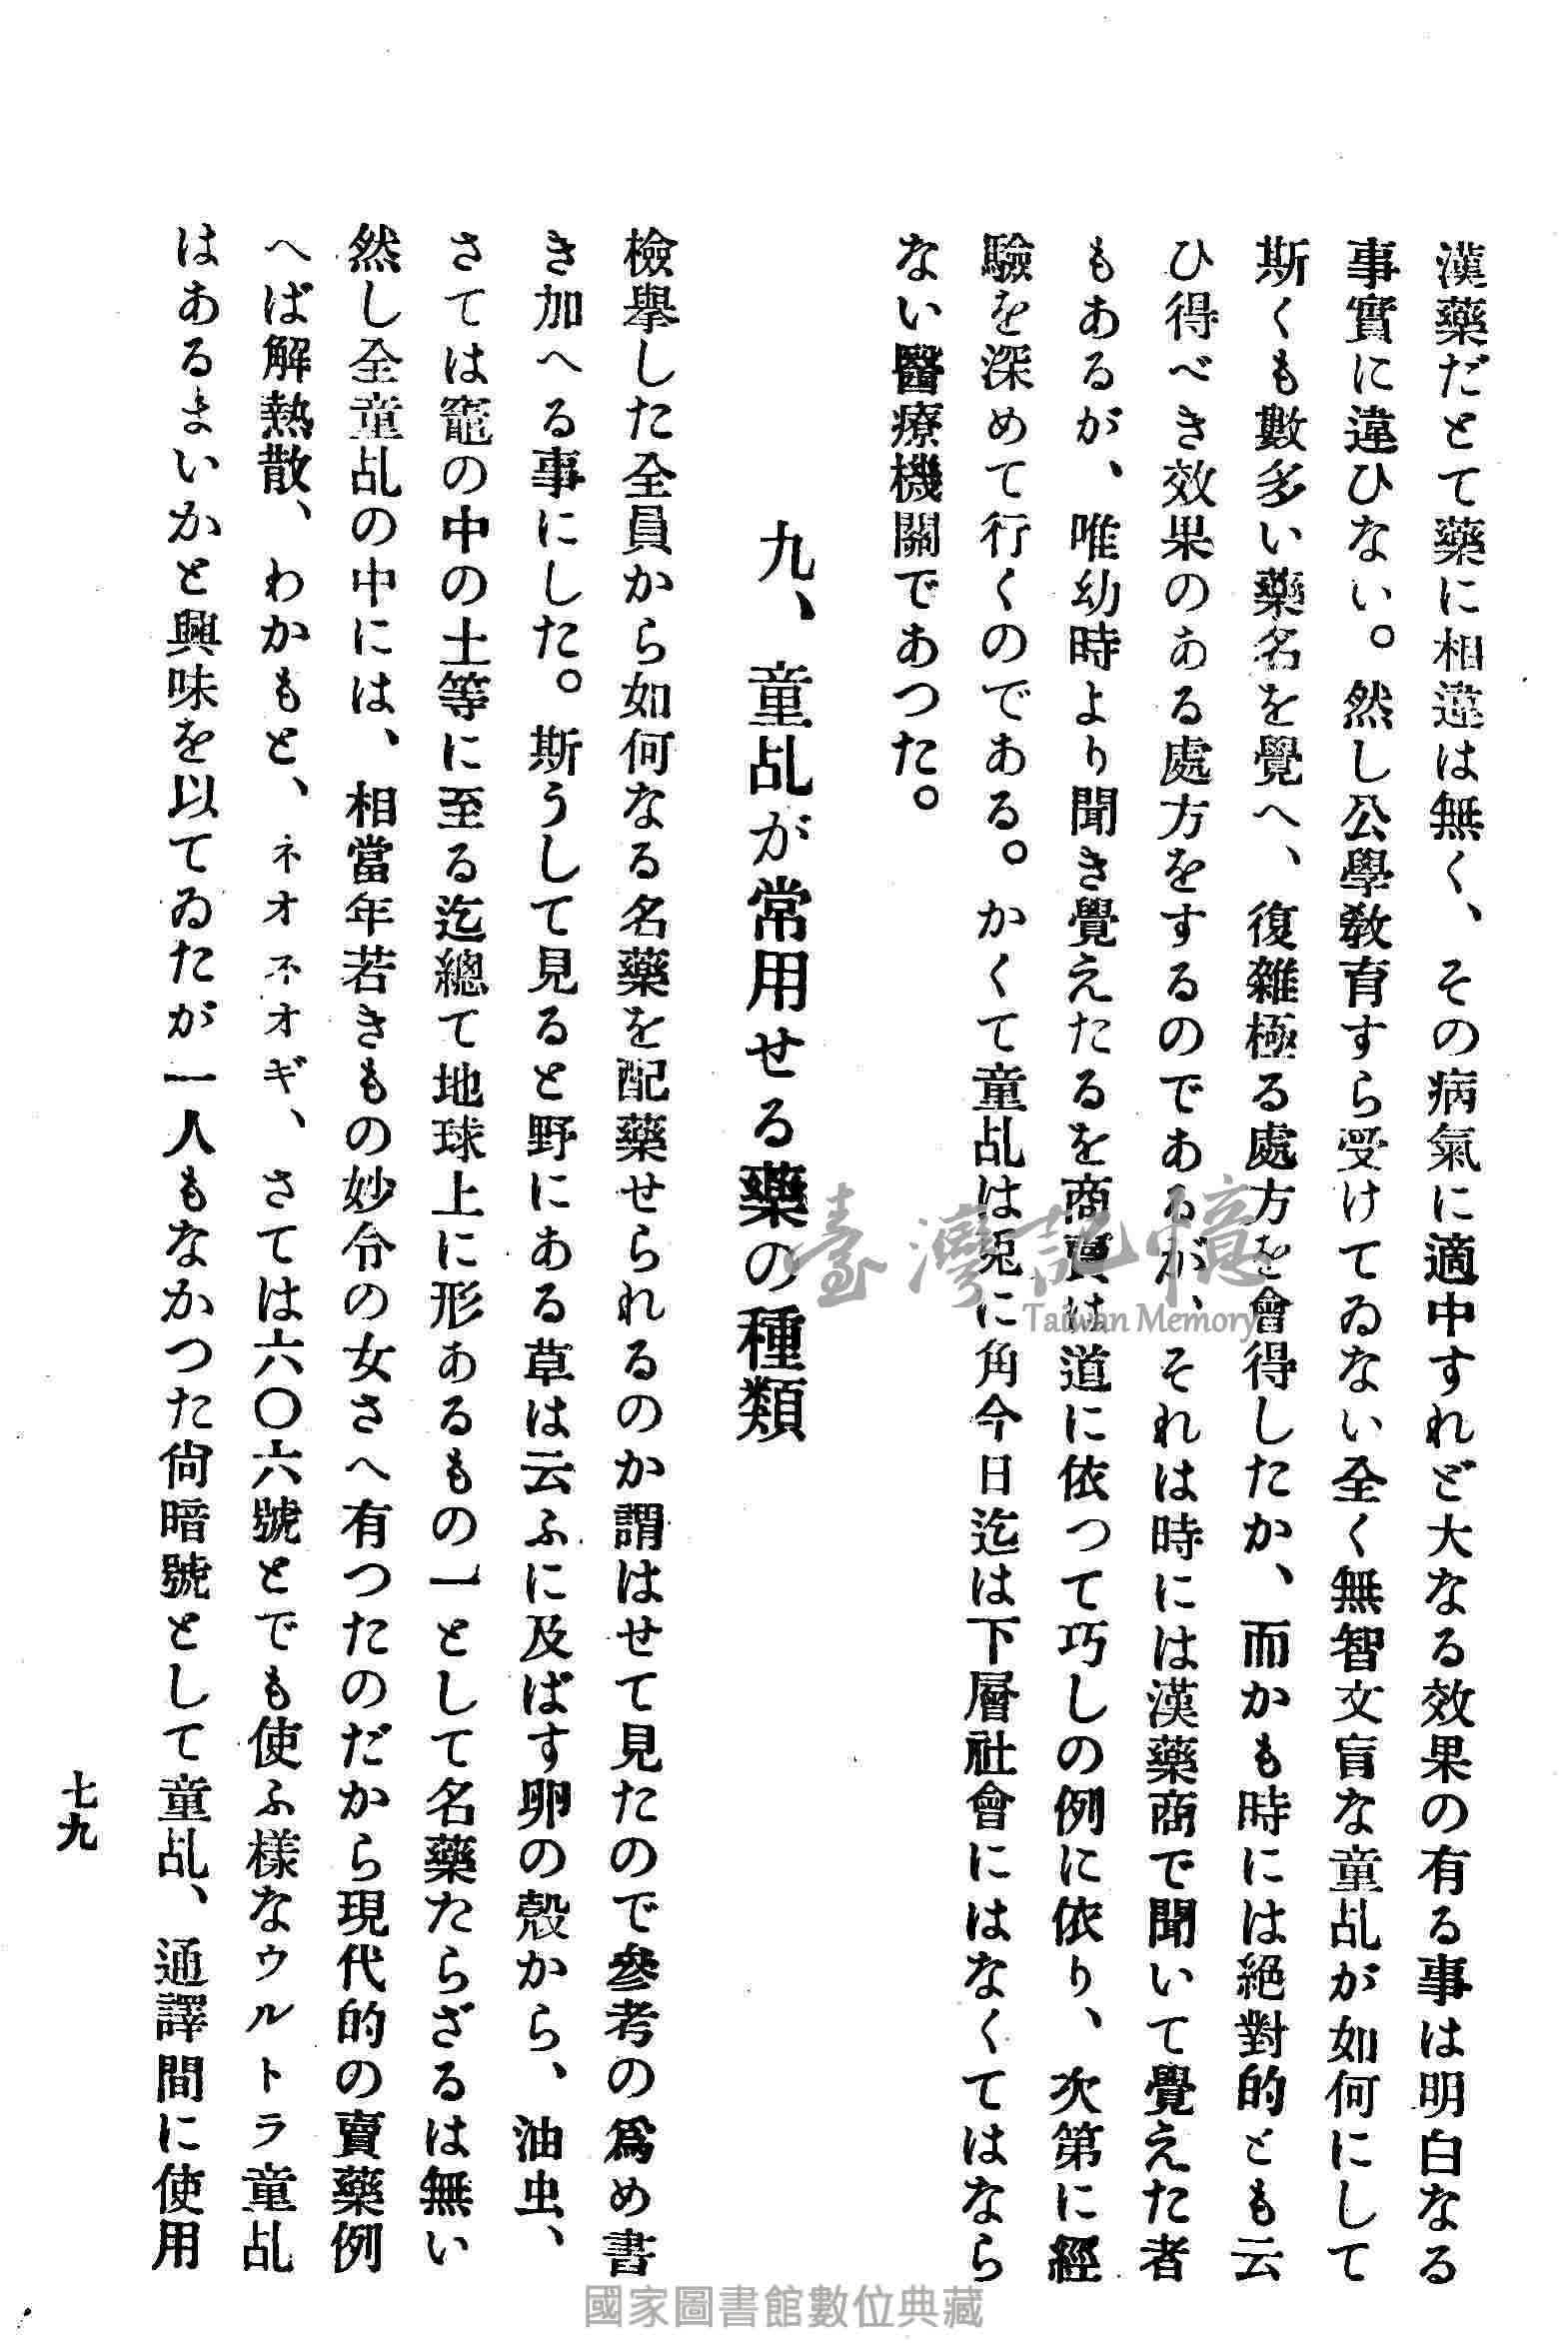 漢藥だとて藥に相違は無く、その病氣に適中すれど大なる效果の有る事は明白なる
事實に違ひない。然し公學敎育すら受けてゐない全く無智文盲な童乩が如何にして
斯くも數多い藥名を覺へ、復雜極る處方を會得したか、而かも時には絕對的とも云
ひ得べき效果のある處方をするのであるが、それは時には漢藥商で聞いて覺えた者
もあるが、唯幼時より聞き覺えたるを商賣は道に依つて巧しの例に依り、次第に經
驗を深めて行くのである。かくて童乩は兎に角今日迄は下層社會にはなくてはなら
ない醫療機關であつた。
九、童乩が常用せる藥の種類
檢擧した全員から如何なる名藥を配藥せられるのか謂はせて見たので參考の爲め書
き加へる事にした。斯うして見ると野にある草は云ふに及ばす卵の殼から、油虫、
さては竈の中の土等に至る迄總て地球上に形あるもの一として名藥たらざるは無い
然し全童乩の中には、相當年若きもの妙令の女さへ有つたのだから現代的の賣藥例
へば解熱散、わかもと、ネオネオギ、さては六〇六號とでも使ふ樣なウルトラ童乩
はあるまいかと興味を以てゐたが一人もなかつた尙暗號として童乩、通譯間に使用
七九
臺灣記憶
Taiwan Memory
國家圖書館數位典藏